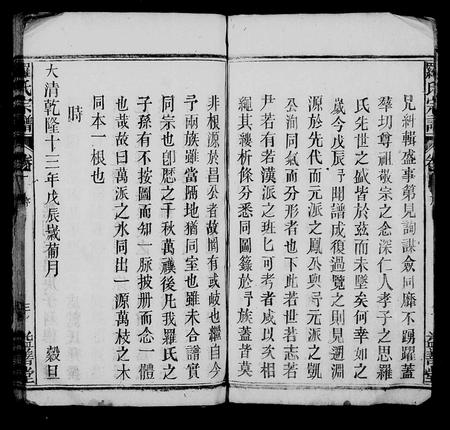 兄糾輯盛事第見詢謀僉同靡不踴躍蓋
犖切尊祖敬宗之念深仁人孝子之思羅
氏先世之盛皆於茲而未墜矣何幸如之
歲今戊辰予聞譜成復過覽之則見遡淵
源於先代而元派之鳳公與予元派之凱
公洵同氣而分形者也下此若世若志若
尹若有若漢派之班匕可考者咸以次相
繩其縷析條分悉同圖錄於予族蓋昔莫
非根源於昌公者故間有或岐也繼自今
予兩族雖當隔地猶同室也雖未合譜實
同宗也卽歷之千秋萬禩後凡我羅氏之
子孫有不按圖而知一脉披册而念一體
也哉故曰萬派之水同出一源萬枝之木
同本一根也
時
大清乾隆十三年戊辰歲葡月 穀旦
羅氏宗譜 卷一